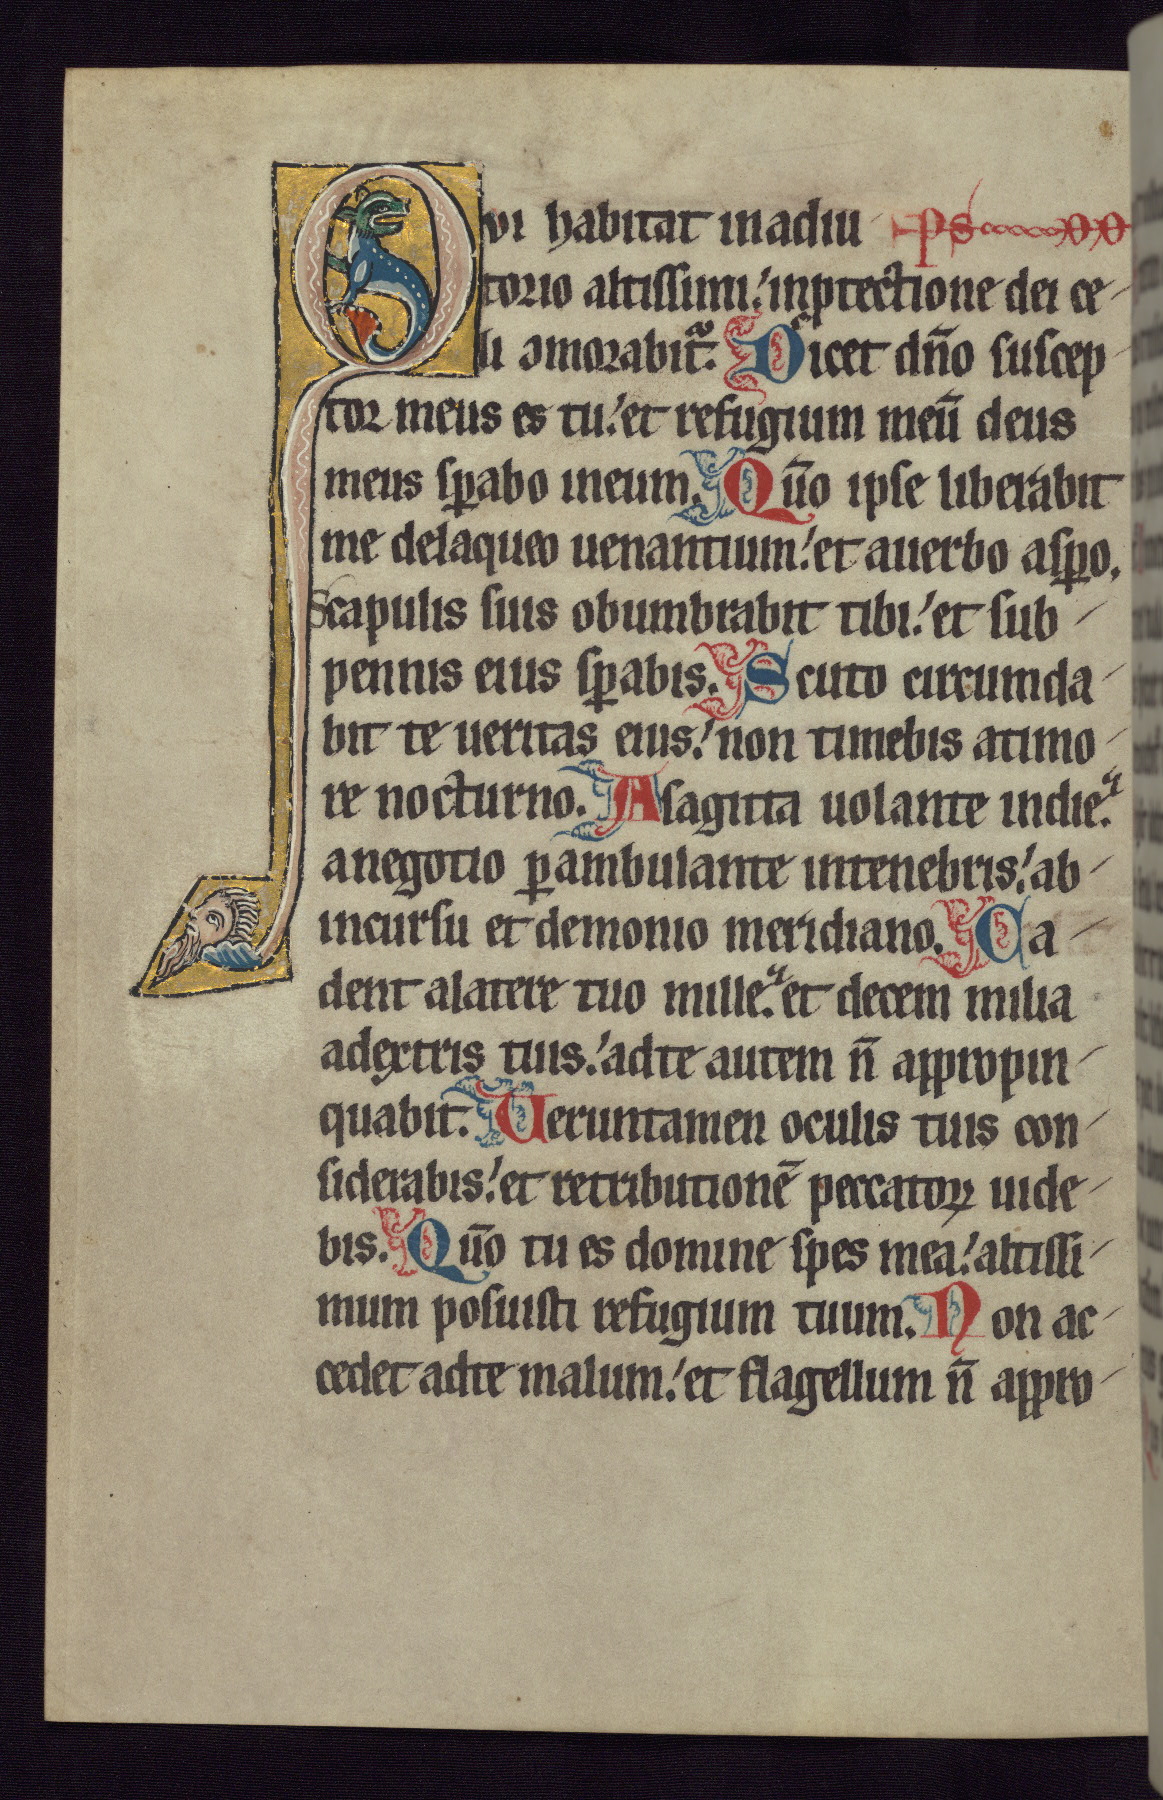 Qui habitat in adiu ps
torio altissimi: in ptectione dei ce
li cōmorabit᷑. Dicet dn̄o suscep
tor meus es tu: et refugium meū deus
meus sꝑabo in eum. Qūo ipse liberabit
me de laqueo uenantium: et a uerbo asꝑo.
Scapulis suis obumbrabit tibi: et sub
pennis eius sꝑabis. Scuto circumda
bit te ueritas eius: non timebis a timo
re nocturno. A sagitta uolante in die:
a negotio ꝑambulante in tenebris: ab
incursu et demonio meridiano. Ca
dent a latere tuo mille: et decem milia
a dextris tuis: ad te autem n̄ appropin
quabit. Ueruntamen oculis tuis con
siderabis: et retributionē peccatoꝝ uide
bis. Qūo tu es domine spes mea: altissi
mum posuisti refugium tuum. Non ac
cedet ad te malum: et flagellum n̄ appro